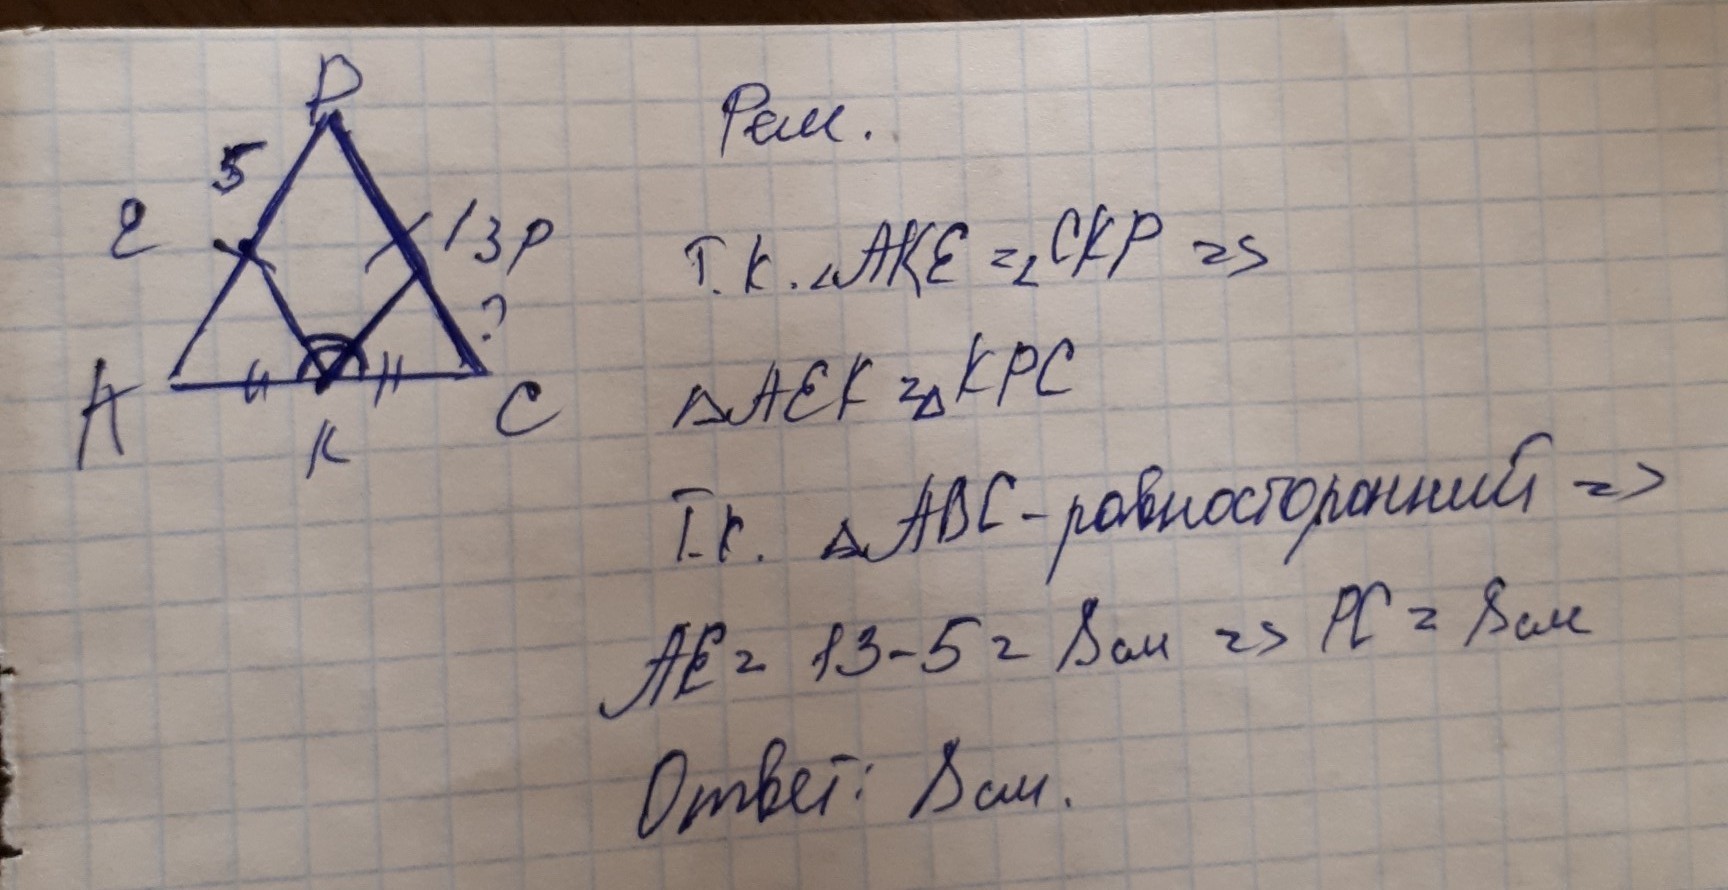 B
5
E
13 P
?
A
K
C
Реш.
Т.к. ∠AKE = ∠CKP =>
△AEK = △KPC
Т.к. △ABC - равносторонний =>
AE = 13 - 5 = 8 см => PC = 8 см
Ответ: 8 см.